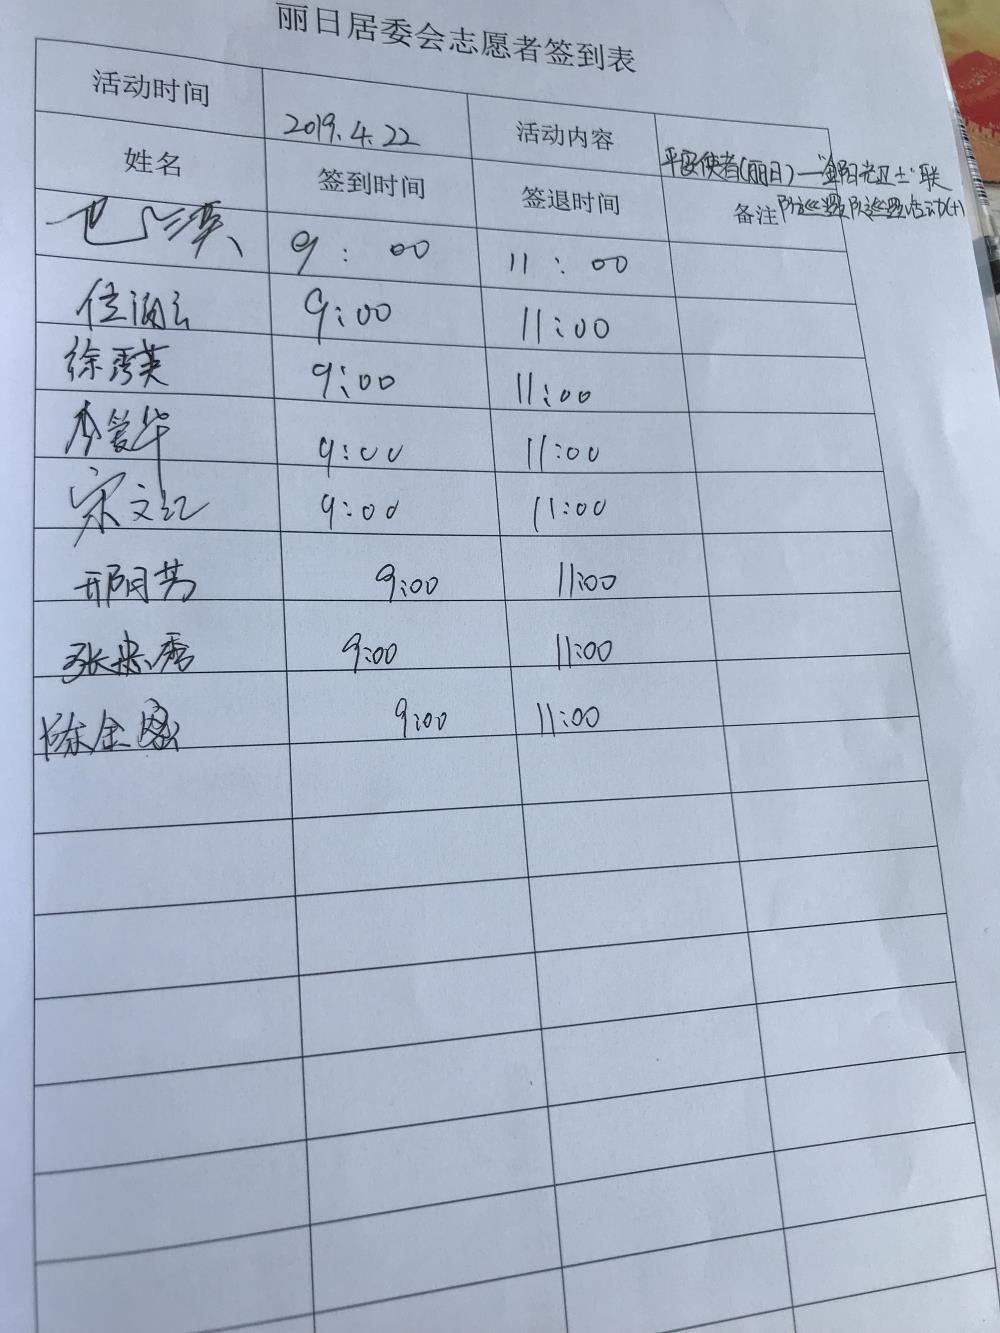 丽日居委会志愿者签到表
活动时间 2019.4.22 活动内容 平安使者(丽日)一"金阳光卫士"联
姓名 签到时间 签退时间 备注
9:00 11:00
9:00 11:00
徐秀英 9:00 11:00
李爱华 9:00 11:00
宋文红 9:00 11:00
邢月芳 9:00 11:00
张 秀 9:00 11:00
陈金 9:00 11:00